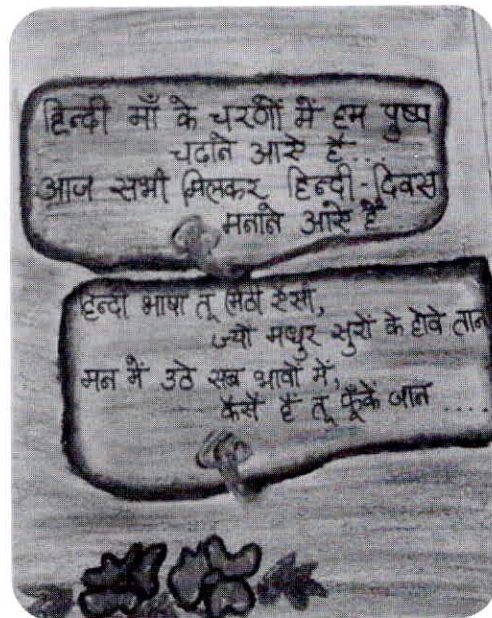 हिन्दी माँ के चरणों में हम पुष्प
चढाने आऐ है...
आज सभी मिलकर हिन्दी-दिवस
मनाने आऐ है
हिन्दी भाषा तू मिठी ऐसी,
ज्यों मधुर सुरों के होवे तान
मन में उठे सब भावों में,
कैसे है तू फूँके जान ....